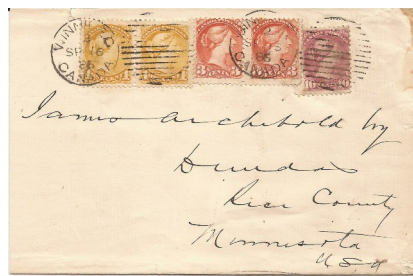 WINNIPEG
SP 16
86
CANADA
1 1 3 3 10 10
James Archibald Esq
Dundas
Rice County
Minnesota
USA